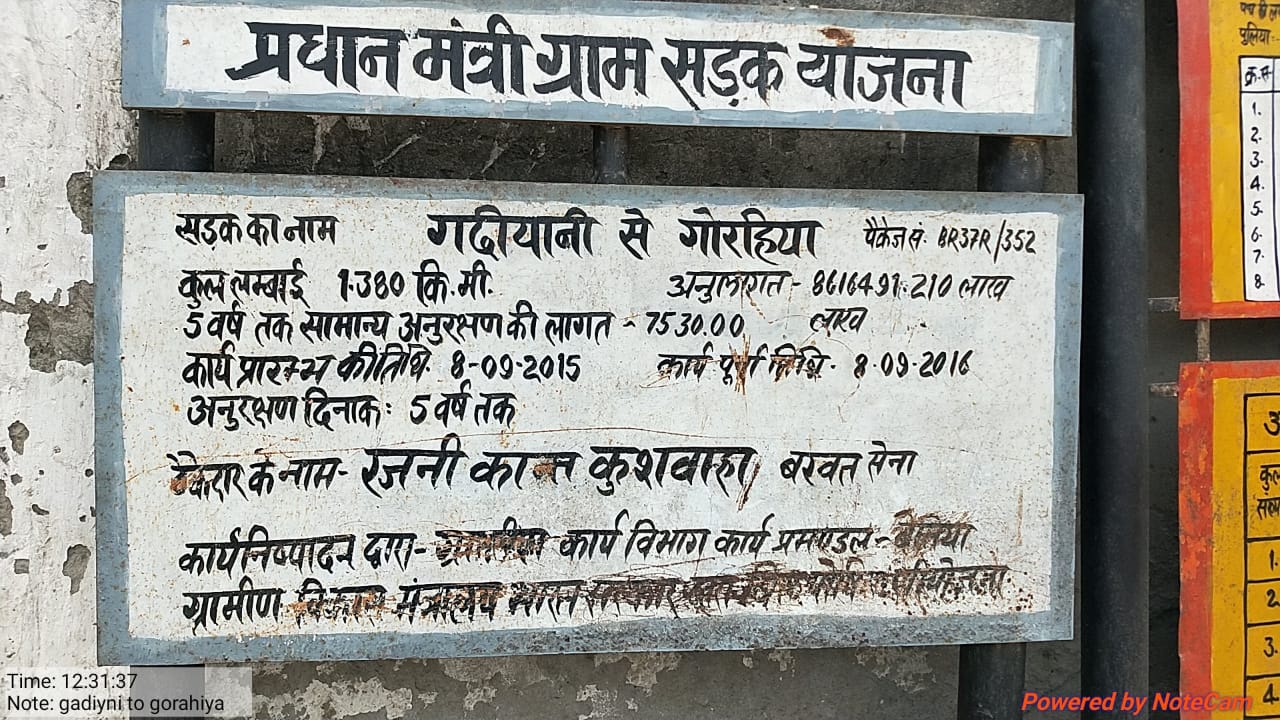 प्रधान मंत्री ग्राम सड़क योजना
सड़क का नाम गदीयानी से गोरहिया पैकेज सं. BR37R/352
कुल लम्बाई 1.380 कि.मी. अनुलागत - 8616491.210 लाख
5 वर्ष तक सामान्य अनुरक्षण की लागत - 7530.00 लाख
कार्य प्रारम्भ की तिथि. 8-09-2015 कार्य पूर्ण तिथि. 8.09.2016
अनुरक्षण दिनाक: 5 वर्ष तक
ठेकेदार के नाम - रजनी कान्त कुशवाहा, बरवत सेना
कार्यनिष्पादन द्वारा - कार्य विभाग कार्य प्रमण्डल -
ग्रामीण विकास मंत्रालय भारत सरकार
पुलिया
क्र.सं
1.
2.
3.
4.
5.
6.
7.
8.
कुल
1.
2.
3.
4.
Time: 12:31:37
Note: gadiyni to gorahiya
Powered by NoteCam